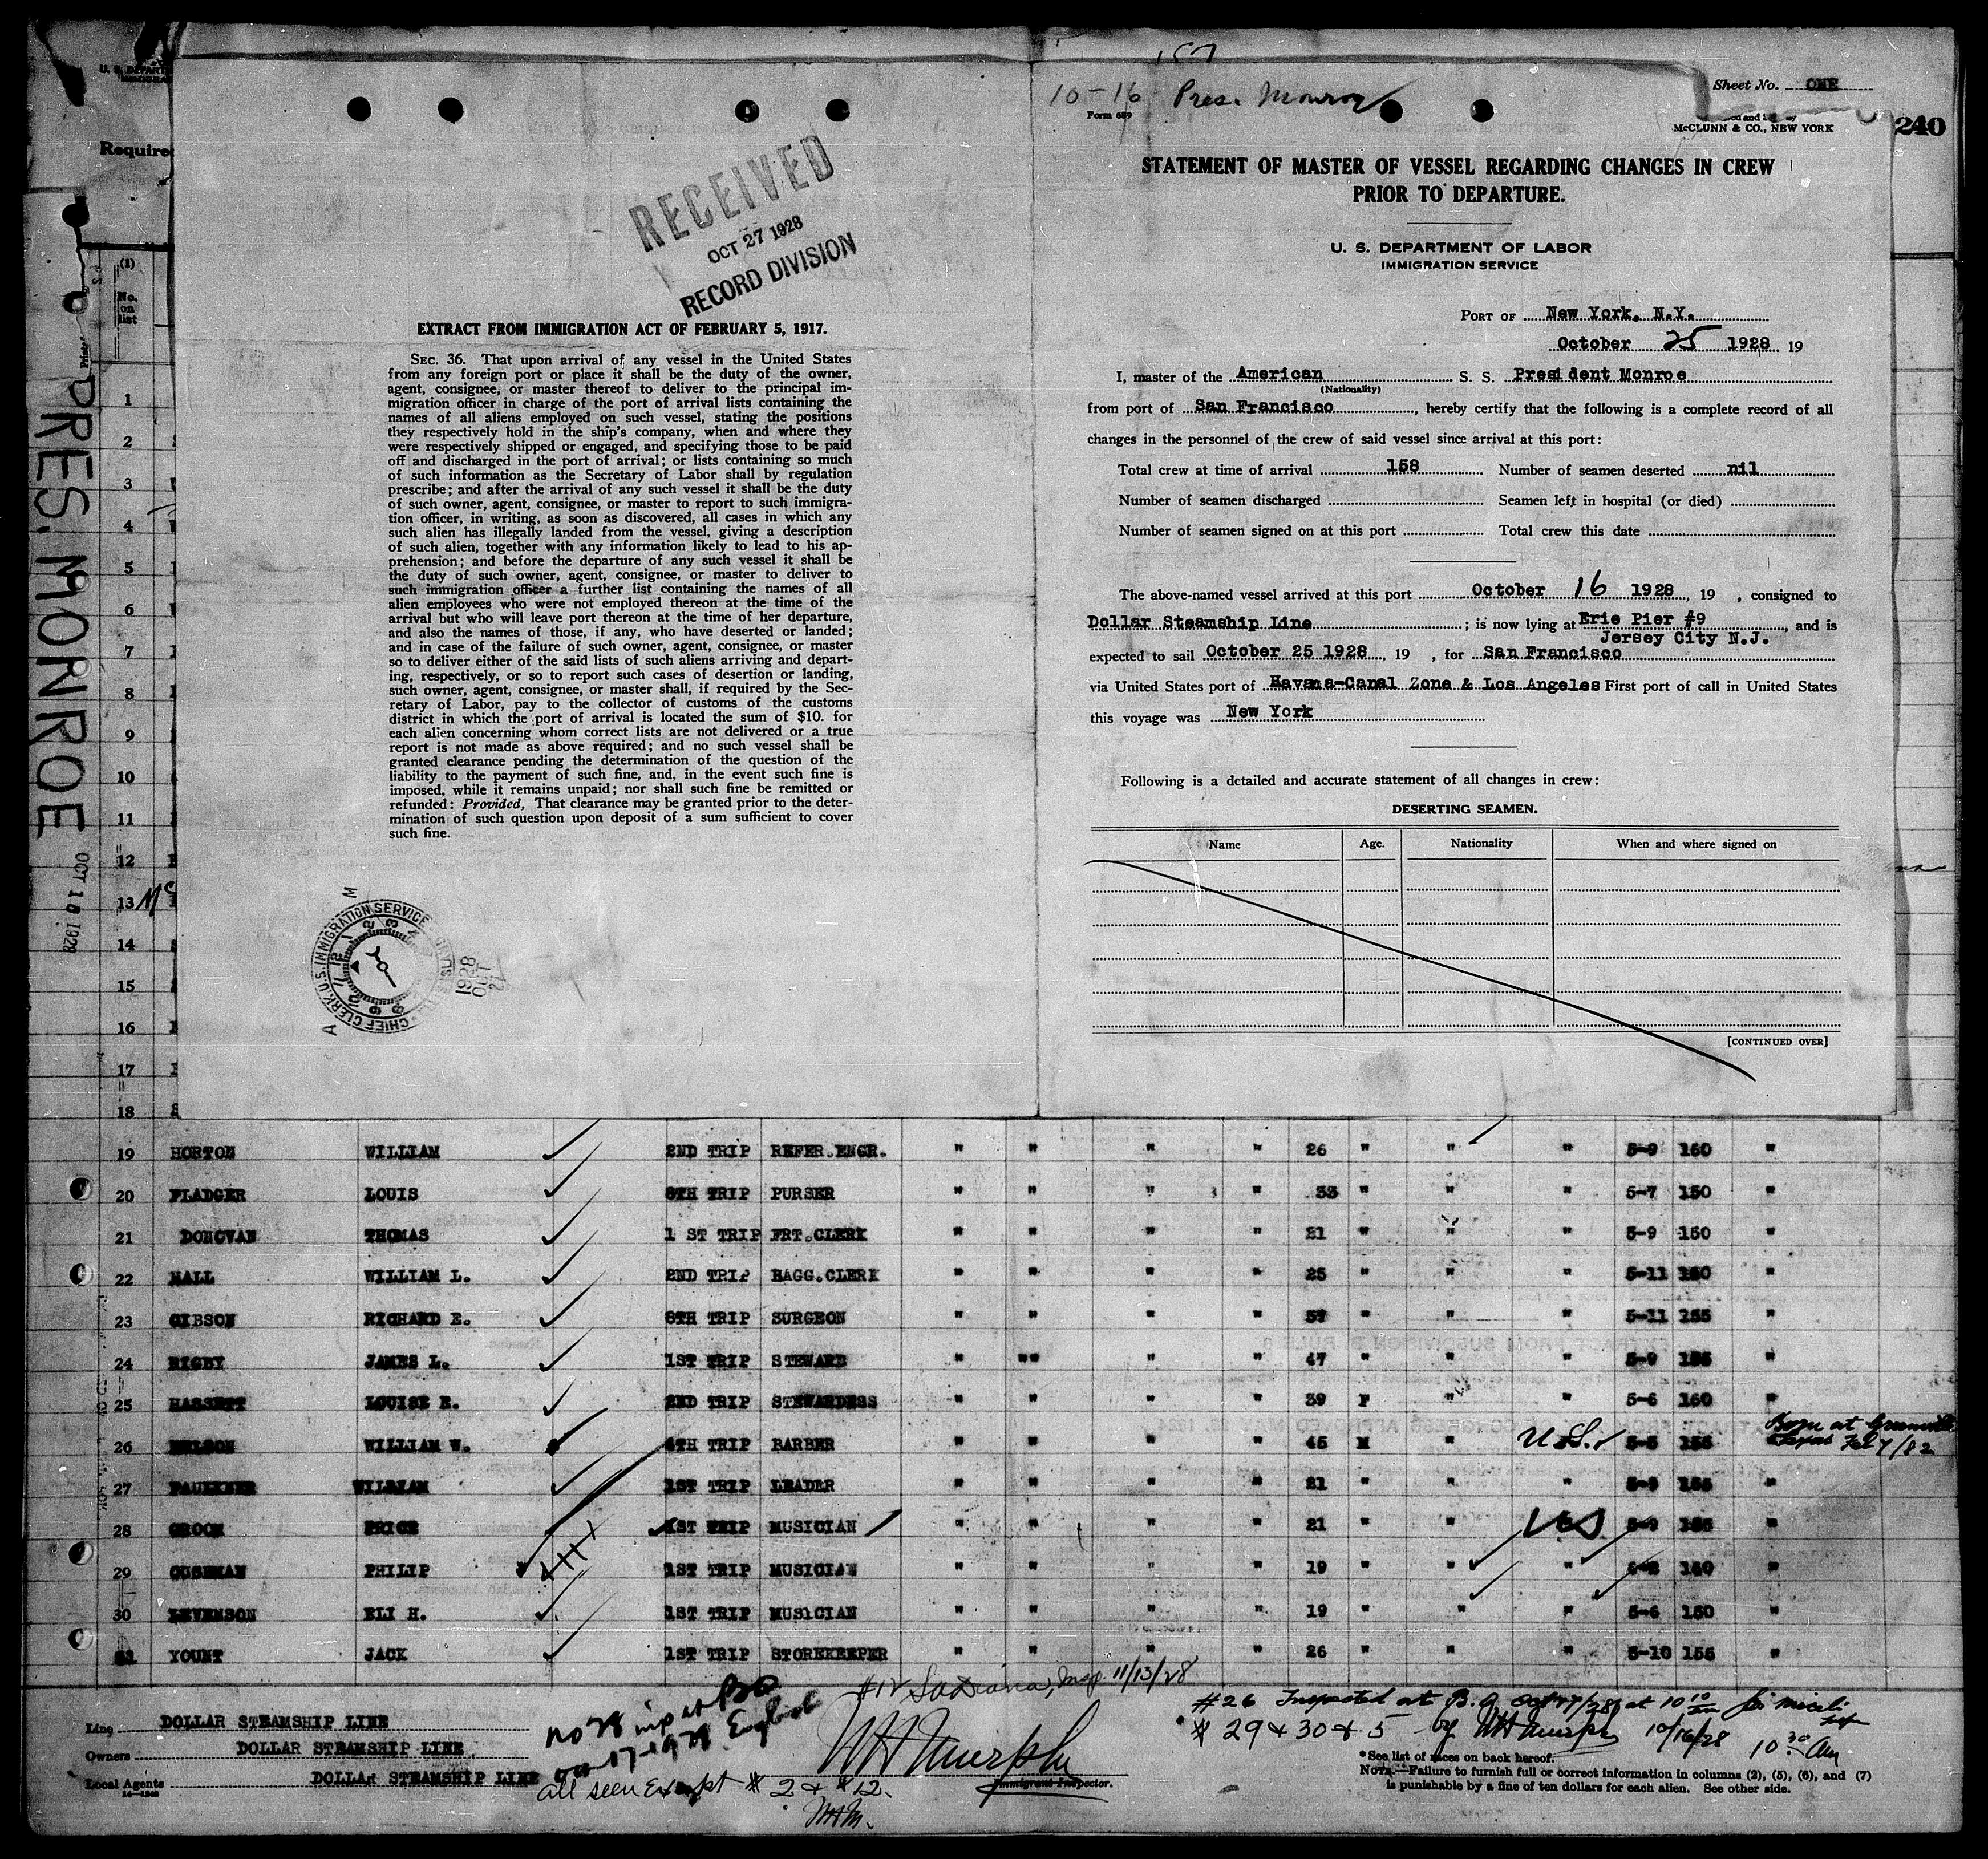 10-16 Pres. Monroe
Form 689
Sheet No. ONE
McCLUNN & CO., NEW YORK
240
U. S. DEPART
IMMIGRA
Require
PRES. MONROE
OCT 1 6 1928
(1)
No.
on
list
1
2
3
4
5
6
7
8
9
10
11
12
13
14
15
16
17
18
RECEIVED
OCT 27 1928
RECORD DIVISION
EXTRACT FROM IMMIGRATION ACT OF FEBRUARY 5, 1917.
SEC. 36. That upon arrival of any vessel in the United States
from any foreign port or place it shall be the duty of the owner,
agent, consignee, or master thereof to deliver to the principal im-
migration officer in charge of the port of arrival lists containing the
names of all aliens employed on such vessel, stating the positions
they respectively hold in the ship's company, when and where they
were respectively shipped or engaged, and specifying those to be paid
off and discharged in the port of arrival; or lists containing so much
of such information as the Secretary of Labor shall by regulation
prescribe; and after the arrival of any such vessel it shall be the duty
of such owner, agent, consignee, or master to report to such immigra-
tion officer, in writing, as soon as discovered, all cases in which any
such alien has illegally landed from the vessel, giving a description
of such alien, together with any information likely to lead to his ap-
prehension; and before the departure of any such vessel it shall be
the duty of such owner, agent, consignee, or master to deliver to
such immigration officer a further list containing the names of all
alien employees who were not employed thereon at the time of the
arrival but who will leave port thereon at the time of her departure,
and also the names of those, if any, who have deserted or landed;
and in case of the failure of such owner, agent, consignee, or master
so to deliver either of the said lists of such aliens arriving and depart-
ing, respectively, or so to report such cases of desertion or landing,
such owner, agent, consignee, or master shall, if required by the Sec-
retary of Labor, pay to the collector of customs of the customs
district in which the port of arrival is located the sum of $10. for
each alien concerning whom correct lists are not delivered or a true
report is not made as above required; and no such vessel shall be
granted clearance pending the determination of the question of the
liability to the payment of such fine, and, in the event such fine is
imposed, while it remains unpaid; nor shall such fine be remitted or
refunded: Provided, That clearance may be granted prior to the deter-
mination of such question upon deposit of a sum sufficient to cover
such fine.
CHIEF CLERK, U.S. IMMIGRATION SERVICE
1928
OCT
27
STATEMENT OF MASTER OF VESSEL REGARDING CHANGES IN CREW
PRIOR TO DEPARTURE.
U. S. DEPARTMENT OF LABOR
IMMIGRATION SERVICE
PORT OF New York, N.Y.
October 25 1928 19
I, master of the American S. S. President Monroe
(Nationality)
from port of San Francisco, hereby certify that the following is a complete record of all
changes in the personnel of the crew of said vessel since arrival at this port:
Total crew at time of arrival 158 Number of seamen deserted nil
Number of seamen discharged Seamen left in hospital (or died)
Number of seamen signed on at this port Total crew this date
The above-named vessel arrived at this port October 16 1928, 19 , consigned to
Dollar Steamship Line ; is now lying at Erie Pier #9
Jersey City N.J. , and is
expected to sail October 25 1928, 19 , for San Francisco
via United States port of Havana-Canal Zone & Los Angeles First port of call in United States
this voyage was New York
Following is a detailed and accurate statement of all changes in crew:
DESERTING SEAMEN.
Name Age. Nationality When and where signed on
[CONTINUED OVER]
19 HORTON WILLIAM 2ND TRIP REFER.ENGR. " " " " 26 " " " 5-9 160 "
20 FLADGER LOUIS 8TH TRIP PURSER " " " " 33 " " " 5-7 150 "
21 DONOVAN THOMAS 1 ST TRIP FRT.CLERK " " " " 21 " " " 5-9 150 "
22 HALL WILLIAM L. 2ND TRIP BAGG.CLERK " " " " 25 " " " 5-11 160 "
23 GIBSON RICHARD E. 8TH TRIP SURGEON " " " " 57 " " " 5-11 155 "
24 RIGBY JAMES L. 1ST TRIP STEWARD " "" " " 47 " " " 5-9 155 "
25 HASSETT LOUISE E. 2ND TRIP STEWARDESS " " " " 39 F " " 5-6 160 "
26 NELSON WILLIAM W. 4TH TRIP BARBER " " " " 45 M " U.S. 5-5 155 Born at Greenville Texas Feb 7/82
27 FAULKNER WILLIAM 1ST TRIP LEADER " " " " 21 " " " 5-9 155 "
28 GROOM PRICE 1ST TRIP MUSICIAN " " " " 21 " " 5-9 155 "
29 CUSHMAN PHILIP 1ST TRIP MUSICIAN " " " " 19 " " " 140 "
30 LEVENSON ELI H. 1ST TRIP MUSICIAN " " " " 19 " " " 5-6 150 "
31 YOUNT JACK 1ST TRIP STOREKEEPER " " " " 26 " " " 5-10 155 "
Line DOLLAR STEAMSHIP LINE
Owners DOLLAR STEAMSHIP LINE
Local Agents DOLLAR STEAMSHIP LINE
#12 Insp. 11/13/28
No 28 insp at BO
all seen Except # 2 & # 12.
WHM.
WH Murphy
Immigrant Inspector.
#26 Inspected at B.O. Oct 17/28 at 10 10 am
# 29 & 30 & 5 by WH Murphy 10/16/28 10 30 Am
* See list of races on back hereof.
NOTE.—Failure to furnish full or correct information in columns (2), (5), (6), and (7)
is punishable by a fine of ten dollars for each alien. See other side.